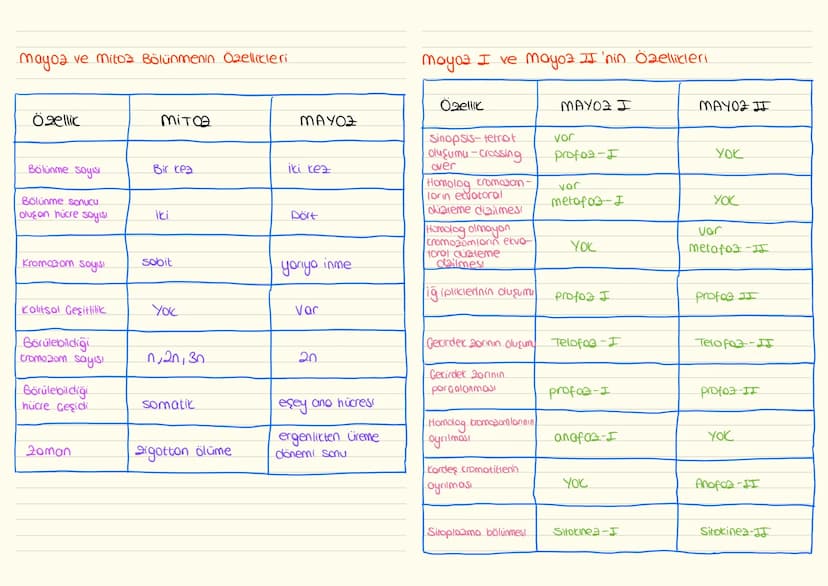 Mayoz ve Mitoz Bölünmenin Özellikleri
Özellik MİTOZ MAYOZ
Bölünme sayısı Bir kez iki kez
Bölünme sonucu
oluşan hücre sayısı iki Dört
Kromozom sayısı sabit yarıya inme
Kalıtsal Çeşitlilik Yok var
Görülebildiği
kromozom sayısı n,2n,3n 2n
Görülebildiği
hücre Çeşidi somatik eşey ana hücresi
Zaman zigottan ölüme ergenlikten üreme
dönemi sonu
Mayoz I ve Mayoz II'nin Özellikleri
Özellik MAYOZ I MAYOZ II
Sinapsis-tetrat
oluşumu-Crossing
over
var
profaz-I
YOK
Homolog kromozom-
ların ekvatoral
düzleme dizilmesi
var
metafaz-I
YOK
Homolog olmayan
kromozomların ekva-
toral düzleme
dizilmesi
YOK
var
metafaz-II
iğ ipliklerinin oluşumu profaz I profaz II
Çekirdek zarının oluşum Telofaz-I Telofaz-II
Çekirdek zarının
parçalanması profaz-I profaz-II
Homolog kromozomlarının
ayrılması anafaz-I YOK
Kardeş kromatitlerin
ayrılması YOK Anafaz-II
Sitoplazma bölünmesi Sitokinez-I Sitokinez-II